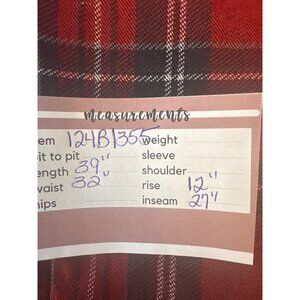 measurements
em 124B1355 weight
it to pit sleeve
ength 39" shoulder
waist 32" rise 12"
ips inseam 27"